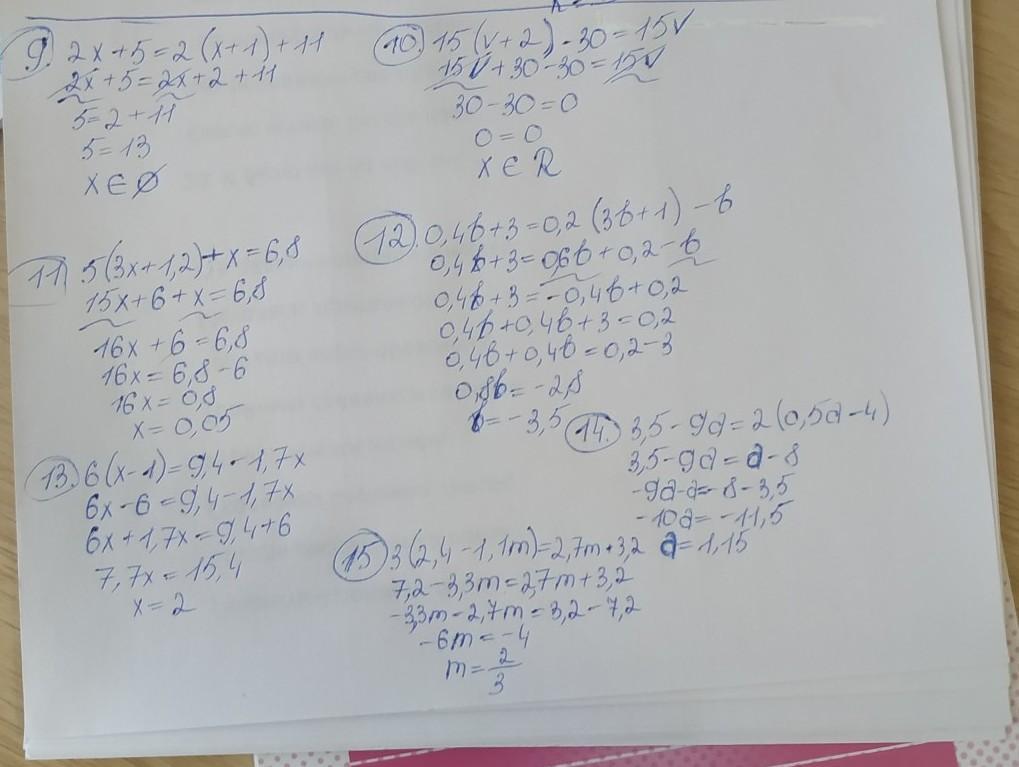 9. 2x+5=2(x+1)+11
2x+5=2x+2+11
5=2+11
5=13
x∈∅
10. 15(v+2)-30=15v
15v+30-30=15v
30-30=0
0=0
x∈R
11) 5(3x+1,2)+x=6,8
15x+6+x=6,8
16x+6=6,8
16x=6,8-6
16x=0,8
x=0,05
12. 0,4b+3=0,2(3b+1)-b
0,4b+3=0,6b+0,2-b
0,4b+3=-0,4b+0,2
0,4b+0,4b+3=0,2
0,4b+0,4b=0,2-3
0,8b=-2,8
b=-3,5
13. 6(x-1)=9,4-1,7x
6x-6=9,4-1,7x
6x+1,7x=9,4+6
7,7x=15,4
x=2
14. 3,5-9a=2(0,5a-4)
3,5-9a=a-8
-9a-a=-8-3,5
-10a=-11,5
a=1,15
15 3(2,4-1,1m)=2,7m+3,2
7,2-3,3m=2,7m+3,2
-3,3m-2,7m=3,2-7,2
-6m=-4
m=2/3